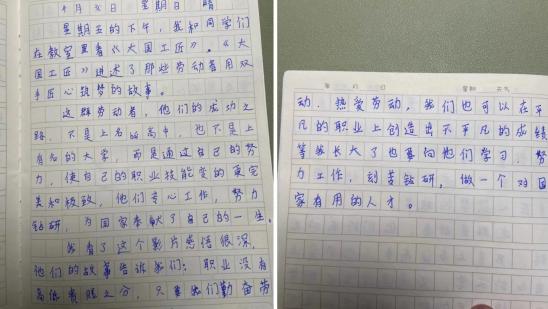 4 月 26 日 星期日 晴
星期五的下午，我和同学们
在教室里看《大国工匠》。《大
国工匠》讲述了那些劳动者用双
手匠心筑梦的故事。
这群劳动者，他们的成功之
路，不是上名的高中，也不是上
有名的大学，而是通过自己的努
力，使自己的职业技能变的更完
美和极致，他们专心工作，努力
钻研，为国家奉献了自己的一生。
我看了这个影片感悟很深，
他们的故事告诉我们：职业没有
高低贵贱之分，只要我们勤奋劳
年 月 日 星期 天气
动，热爱劳动，我们也可以在平
凡的职业上创造出不平凡的成绩
等我长大了也要向他们学习，努
力工作，刻苦钻研，做一个对国
家有用的人才。